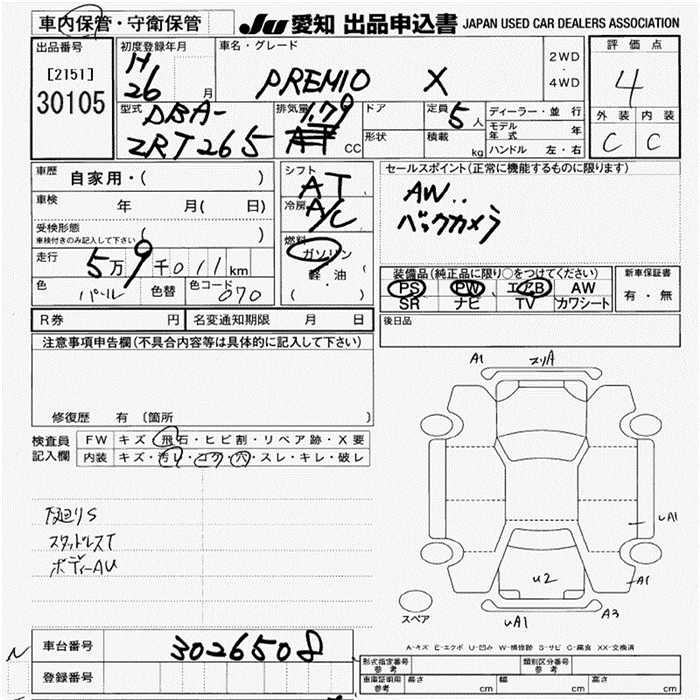 車内保管・守衛保管
JU 愛知 出品申込書 JAPAN USED CAR DEALERS ASSOCIATION
出品番号
[2151]
30105
初度登録年月
H
26 月
車名・グレード
PREMIO X
2WD
・
4WD
評価点
4
外装 内装
C C
型式
DBA-
ZRT265
排気量
1.79
CC
ドア
形状
定員 5 人
積載 kg
ディーラー・並行
モデル年式 年
ハンドル 左・右
車歴 自家用・( )
車検 年 月( 日)
受検形態
車検付きのみ記入して下さい ( )
走行 5万9千011km
色 パール 色替 色コード 070
シフト AT
冷房 A/C
燃料 ガソリン
軽油
・
( )
セールスポイント(正常に機能するものに限ります)
AW..
バックカメラ
装備品(純正品に限り○をつけてください)
PS PW エアB AW
SR ナビ TV カワシート
新車保証書
有・無
R券 円 名変通知期限 月 日
後日品
注意事項申告欄(不具合内容等は具体的に記入して下さい)
修復歴 有 〔箇所 〕
検査員
記入欄
FW キズ・飛石・ヒビ割・リペア跡・X要
内装 キズ・汚レ・コゲ・穴・スレ・キレ・破レ
スタッドレスT
ボディーAU
A1 スリA
uA1
u2
A1
uA1 A3
スペア
A-キズ E-エクボ U-凹み W-補修跡 S-サビ C-腐食 XX-交換済
車台番号 3026508
登録番号
形式指定番号 参考 類別区分番号 参考
車庫証明用 参考 長さ cm 幅 cm 高さ cm